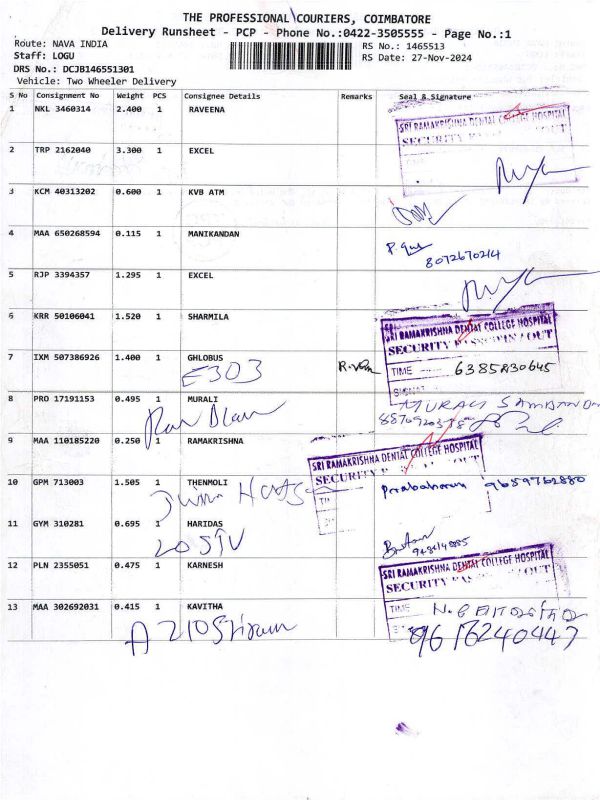 THE PROFESSIONAL COURIERS, COIMBATORE
Delivery Runsheet - PCP - Phone No.:0422-3505555 - Page No.:1
Route: NAVA INDIA
RS No.: 1465513
Staff: LOGU
RS Date: 27-Nov-2024
DRS No.: DCJB146551301
Vehicle: Two Wheeler Delivery
S No Consignment No Weight PCS Consignee Details Remarks Seal & Signature
1 NKL 3460314 2.400 1 RAVEENA
SRI RAMAKRISHNA DENTAL COLLEGE HOSPITAL
2 TRP 2162040 3.300 1 EXCEL
3 KCM 40313202 0.600 1 KVB ATM
4 MAA 650268594 0.115 1 MANIKANDAN
8072670214
5 RJP 3394357 1.295 1 EXCEL
6 KRR 50106041 1.520 1 SHARMILA
SRI RAMAKRISHNA DENTAL COLLEGE HOSPITAL
SECURITY PASS IN / OUT
7 IXM 507386926 1.400 1 GHLOBUS
E303
TIME 6385830645
SIGNAT
8 PRO 17191153 0.495 1 MURALI
MURALI
9 MAA 110185220 0.250 1 RAMAKRISHNA
SRI RAMAKRISHNA DENTAL COLLEGE HOSPITAL
10 GPM 713003 1.505 1 THENMOLI
Prabaharan 9659762880
11 GYM 310281 0.695 1 HARIDAS
12 PLN 2355051 0.475 1 KARNESH
SRI RAMAKRISHNA DENTAL COLLEGE HOSPITAL
SECURITY PASS IN / OUT
13 MAA 302692031 0.415 1 KAVITHA
TIME
A 210 Sriram
9616240447